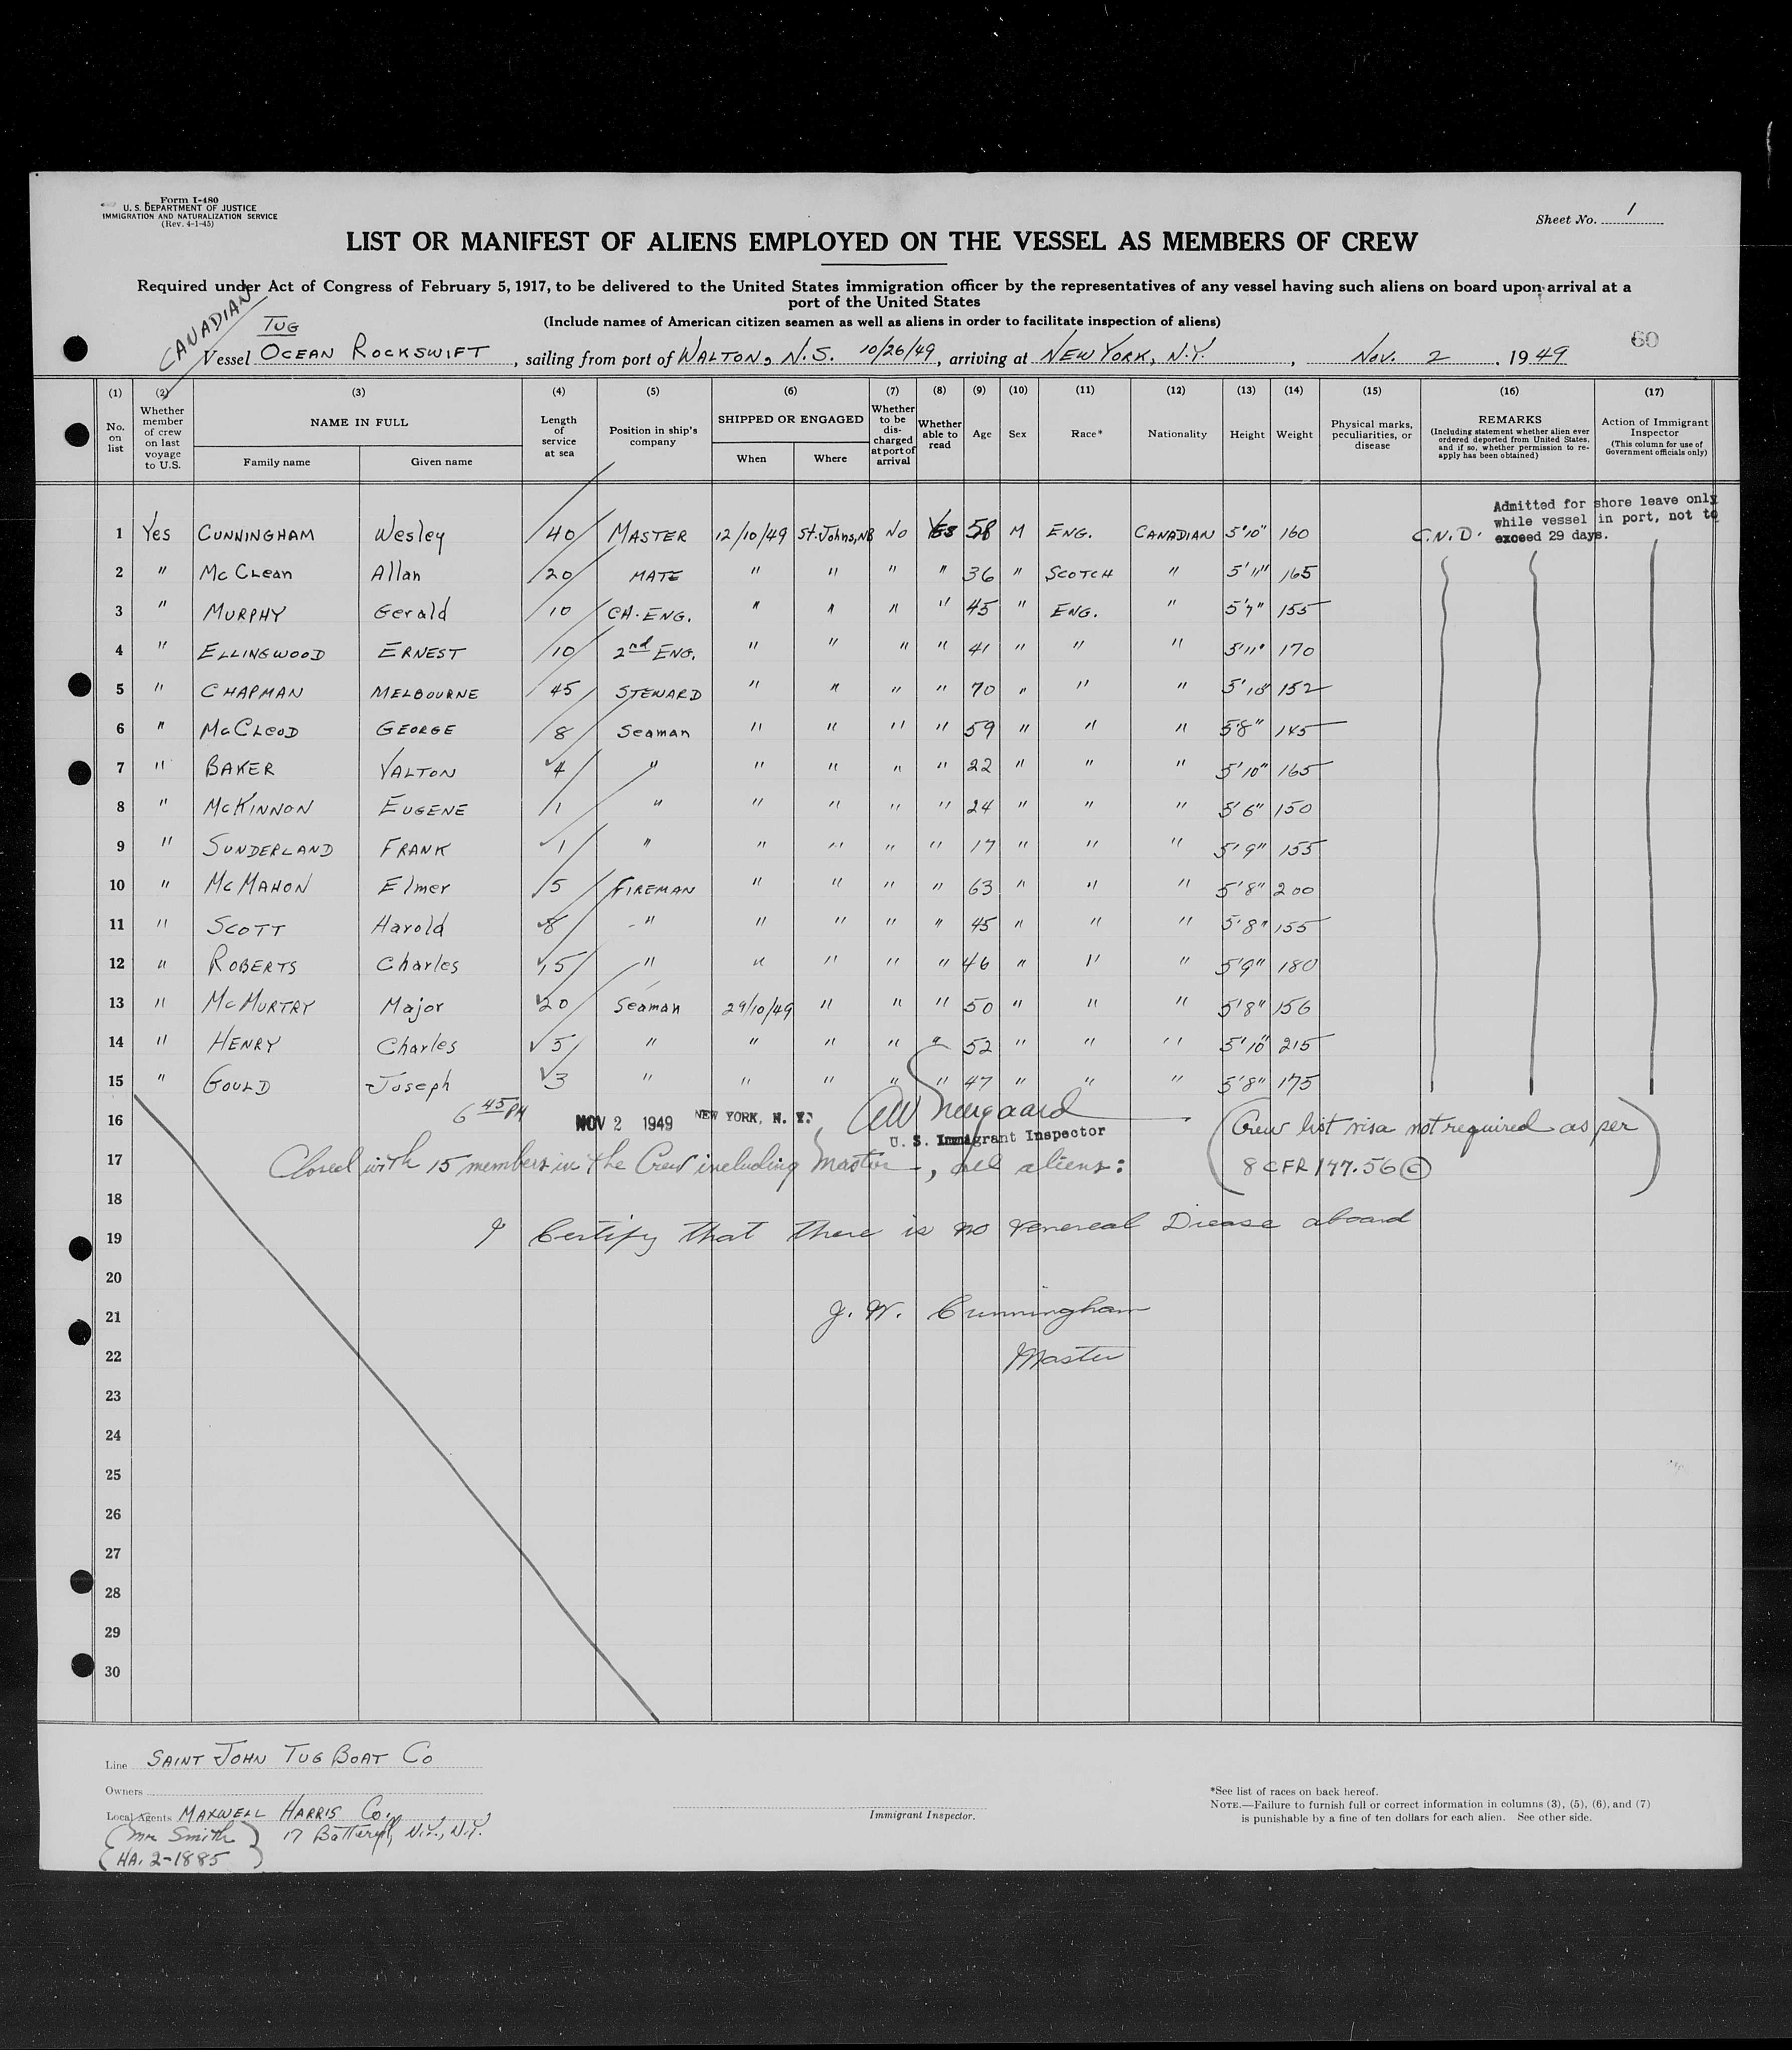 Form I-480
U. S. DEPARTMENT OF JUSTICE
IMMIGRATION AND NATURALIZATION SERVICE
(Rev. 4-1-45)
Sheet No. 1
LIST OR MANIFEST OF ALIENS EMPLOYED ON THE VESSEL AS MEMBERS OF CREW
Required under Act of Congress of February 5, 1917, to be delivered to the United States immigration officer by the representatives of any vessel having such aliens on board upon arrival at a
port of the United States
(Include names of American citizen seamen as well as aliens in order to facilitate inspection of aliens)
CANADIAN
TUG
60
Vessel OCEAN ROCKSWIFT, sailing from port of WALTON, N.S. 10/26/49, arriving at NEW YORK, N.Y., Nov. 2, 1949
(1) (2) (3) (4) (5) (6) (7) (8) (9) (10) (11) (12) (13) (14) (15) (16) (17)
No. on list
Whether member of crew on last voyage to U.S.
NAME IN FULL
Family name Given name
Length of service at sea
Position in ship's company
SHIPPED OR ENGAGED
When Where
Whether to be discharged at port of arrival
Whether able to read
Age
Sex
Race*
Nationality
Height
Weight
Physical marks, peculiarities, or disease
REMARKS
(Including statement whether alien ever ordered deported from United States, and if so, whether permission to reapply has been obtained)
Action of Immigrant Inspector
(This column for use of Government officials only)
Admitted for shore leave only
while vessel in port, not to
exceed 29 days.
1 Yes CUNNINGHAM Wesley 40 MASTER 12/10/49 St. Johns, NB No Yes 58 M ENG. CANADIAN 5'10" 160 C.N.D.
2 " McClean Allan 20 MATE " " " " 36 " SCOTCH " 5'11" 165
3 " MURPHY Gerald 10 CH. ENG. " " " " 45 " ENG. " 5'7" 155
4 " ELLINGWOOD ERNEST 10 2nd ENG. " " " " 41 " " " 5'11" 170
5 " CHAPMAN MELBOURNE 45 STEWARD " " " " 70 " " " 5'10" 152
6 " McCLEOD GEORGE 8 Seaman " " " " 59 " " " 5'8" 145
7 " BAKER VALTON 4 " " " " " 22 " " " 5'10" 165
8 " McKINNON EUGENE 1 " " " " " 24 " " " 5'6" 150
9 " SUNDERLAND FRANK 1 " " " " " 17 " " " 5'9" 155
10 " McMAHON Elmer 5 FIREMAN " " " " 63 " " " 5'8" 200
11 " SCOTT Harold 8 " " " " " 45 " " " 5'8" 155
12 " ROBERTS Charles 15 " " " " " 46 " " " 5'9" 180
13 " McMURTRY Major 20 Seaman 29/10/49 " " " 50 " " " 5'8" 156
14 " HENRY Charles 5 " " " " " 52 " " " 5'10" 215
15 " GOULD Joseph 3 " " " " " 47 " " " 5'8" 175
16 6 45 PM NOV 2 1949 NEW YORK, N. Y. (Crew list visa not required as per
U. S. Immigrant Inspector
17 Closed with 15 members in the Crew including Master, all aliens: 8 CFR 177.56 (c))
18
19 I Certify that there is no venereal Diease aboard
20
21 J. W. Cunningham
22 Master
23
24
25
26
27
28
29
30
Line SAINT JOHN TUG BOAT CO
Owners
Local Agents MAXWELL HARRIS Co.
(Mr Smith) 17 Battery Pl, N.Y., N.Y.
(HA. 2-1885)
Immigrant Inspector.
*See list of races on back hereof.
NOTE.—Failure to furnish full or correct information in columns (3), (5), (6), and (7)
is punishable by a fine of ten dollars for each alien. See other side.